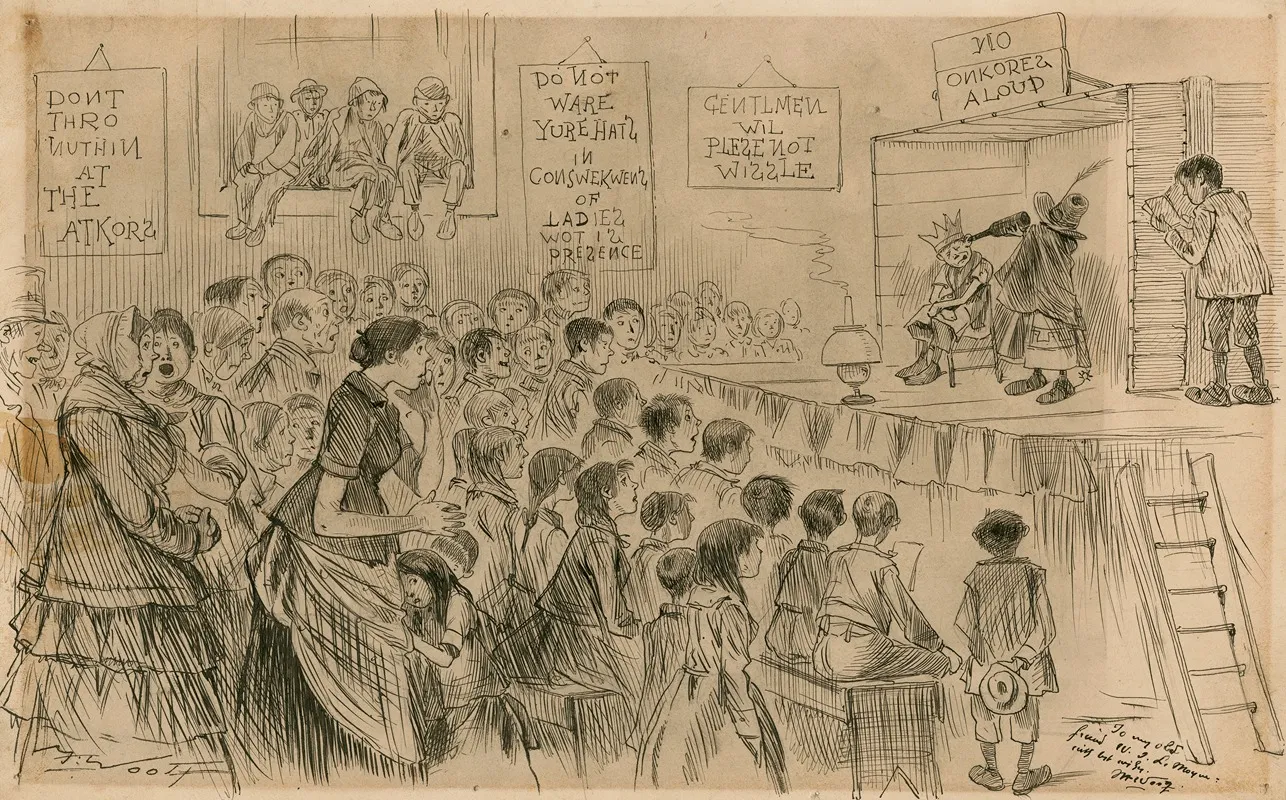 DONT
THRO
NUTHIN
AT
THE
ATKORS
DO NOT
WARE
YURE HATS
IN
CONSWEKWENS
OF
LADIES
WOT IS
PRESENCE
GENTLMEN
WIL
PLESE NOT
WISSLE
NO
ONKORES
ALOUD
To my old
friend W. J. Le Moyne
with best wishes